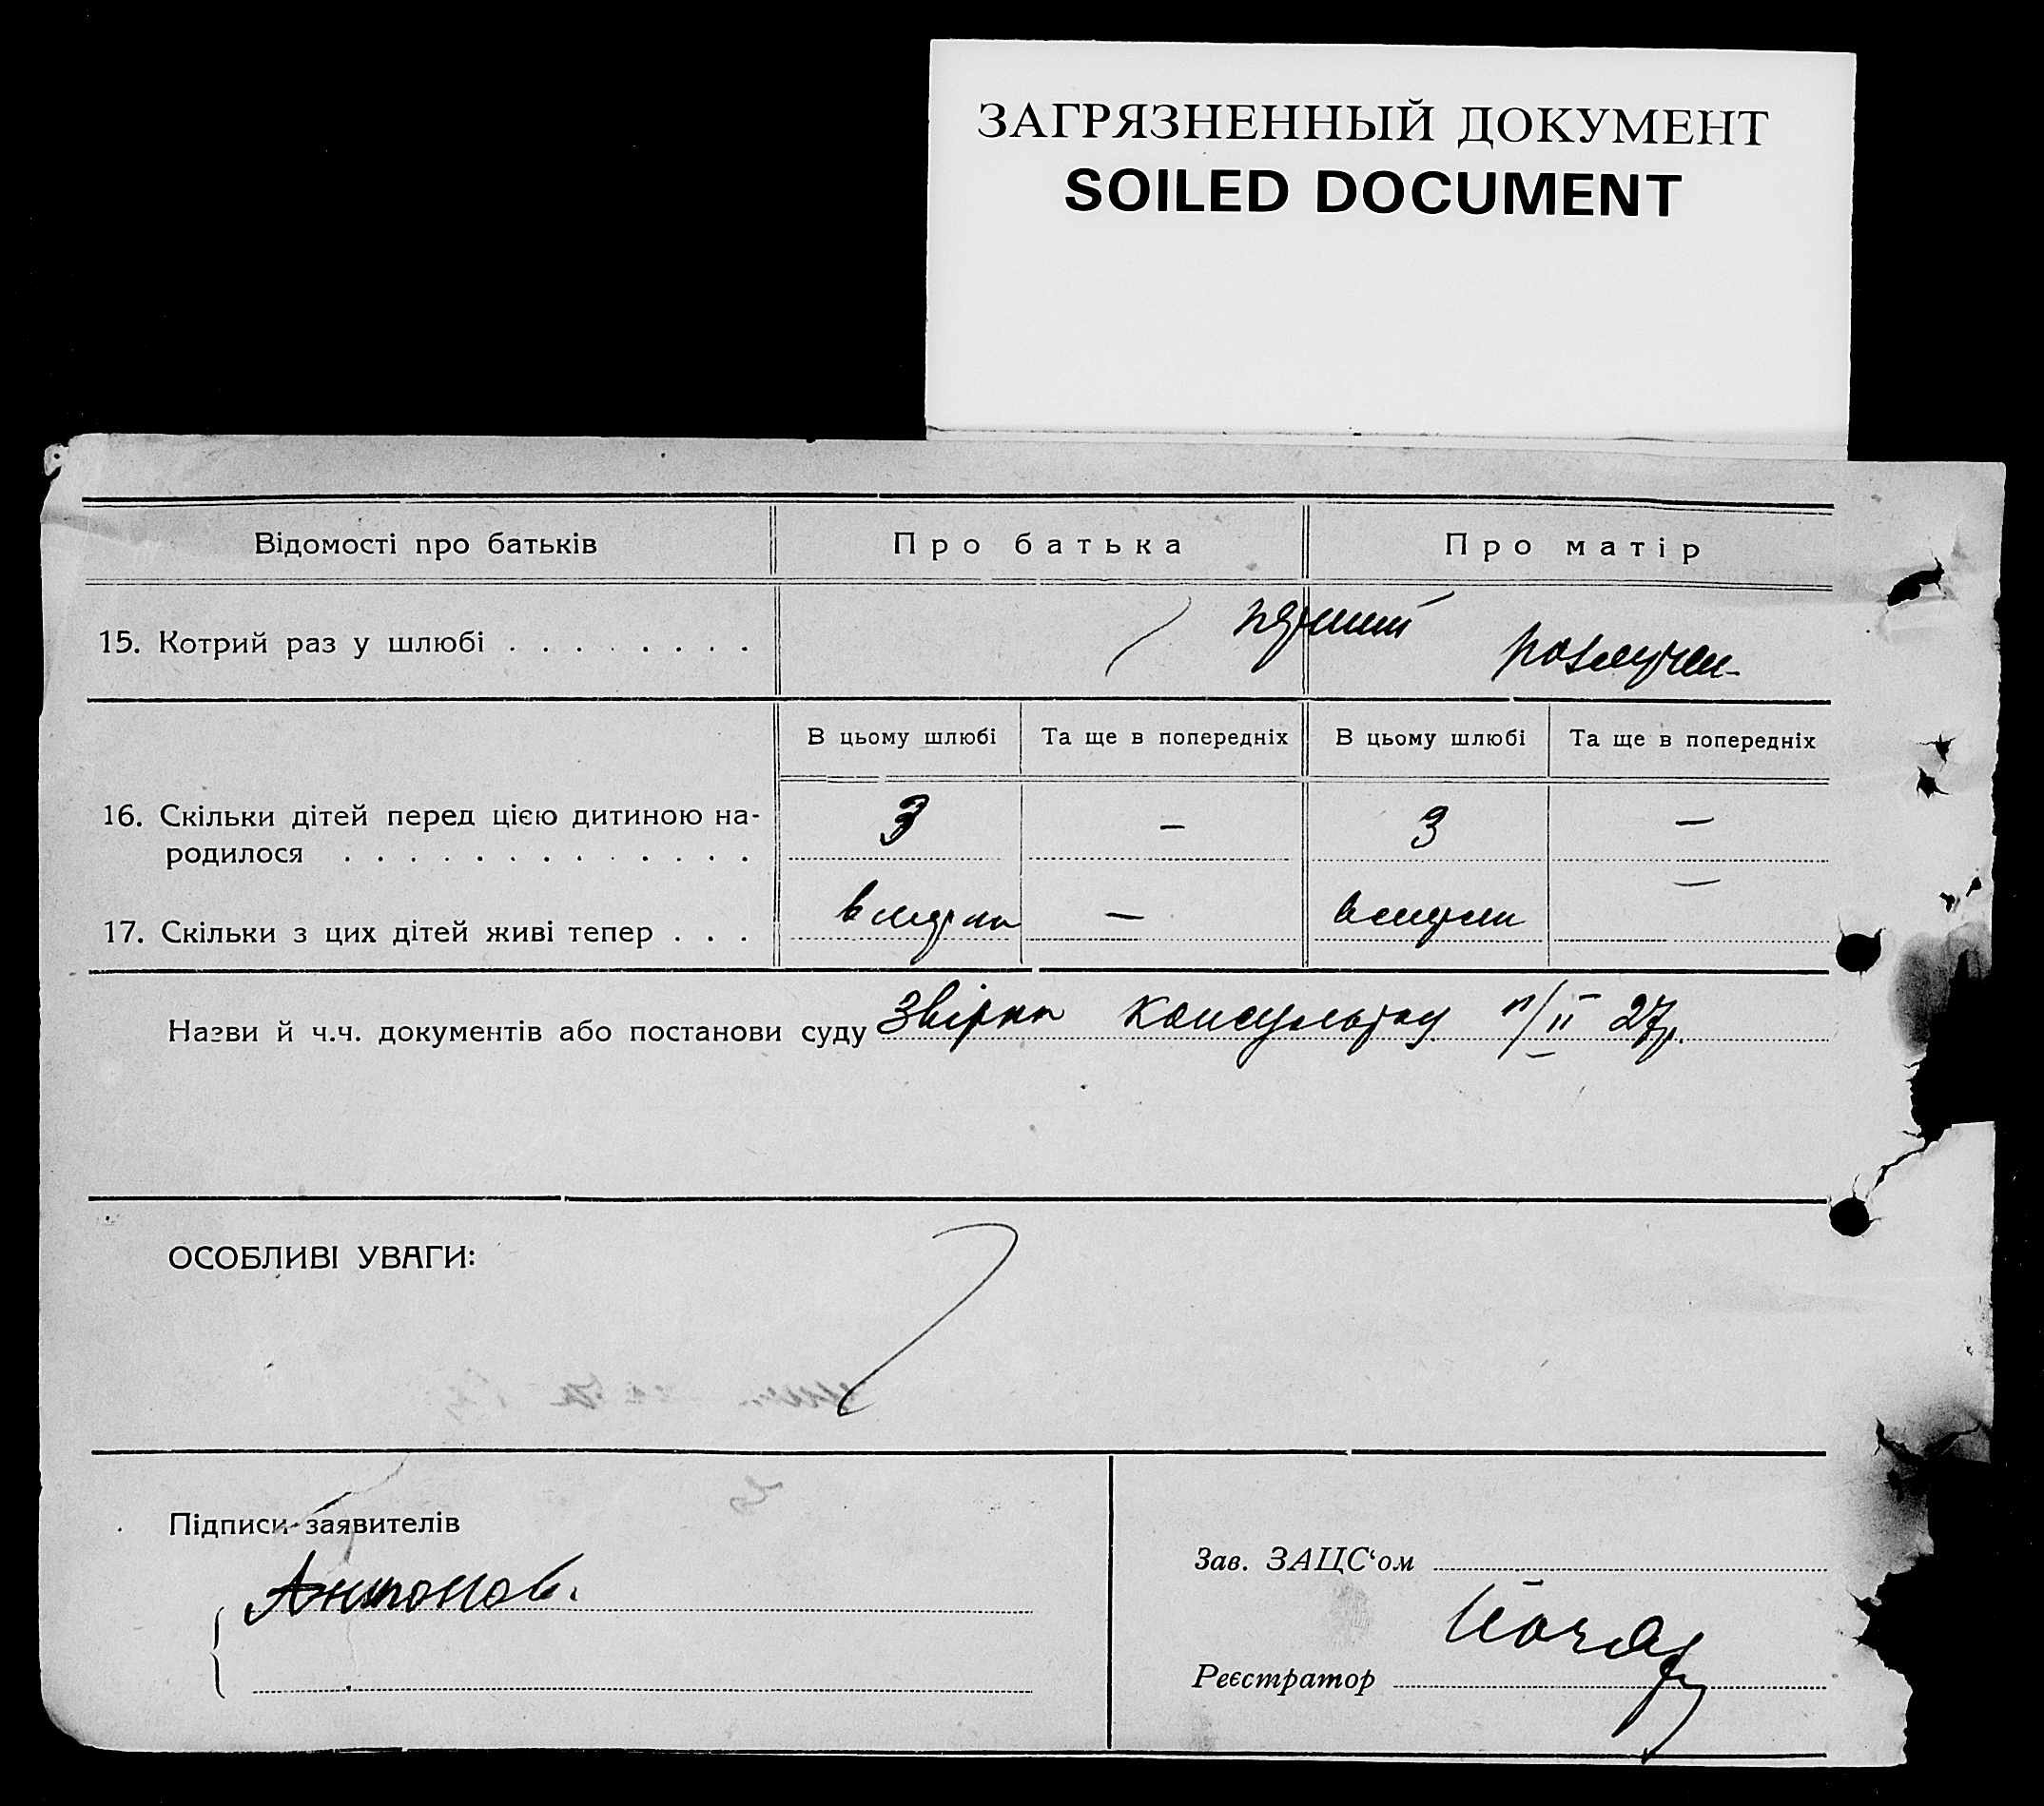 ЗАГРЯЗНЕННЫЙ ДОКУМЕНТ
SOILED DOCUMENT
Відомості про батьків Про батька Про матір
15. Котрий раз у шлюбі . . . . . . . .
В цьому шлюбі Та ще в попередніх В цьому шлюбі Та ще в попередніх
16. Скільки дітей перед цією дитиною на-
родилося . . . . . . . . . . . . . 3 — 3 —
17. Скільки з цих дітей живі тепер . . . — —
Назви й ч.ч. документів або постанови суду
ОСОБЛИВІ УВАГИ:
Підписи заявителів
Антонов.
Зав. ЗАЦС‘ом
Реєстратор